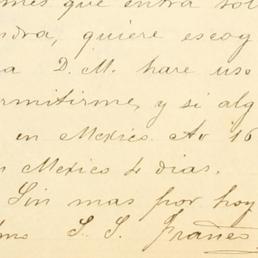 mes que entra sol
ndra, quiere escog
a D. M. hare uso
ermitirme, y si alg
en Mexico. Av 16
n Mexico de dias.
Sin mas por hoy
mo S. S. Franc